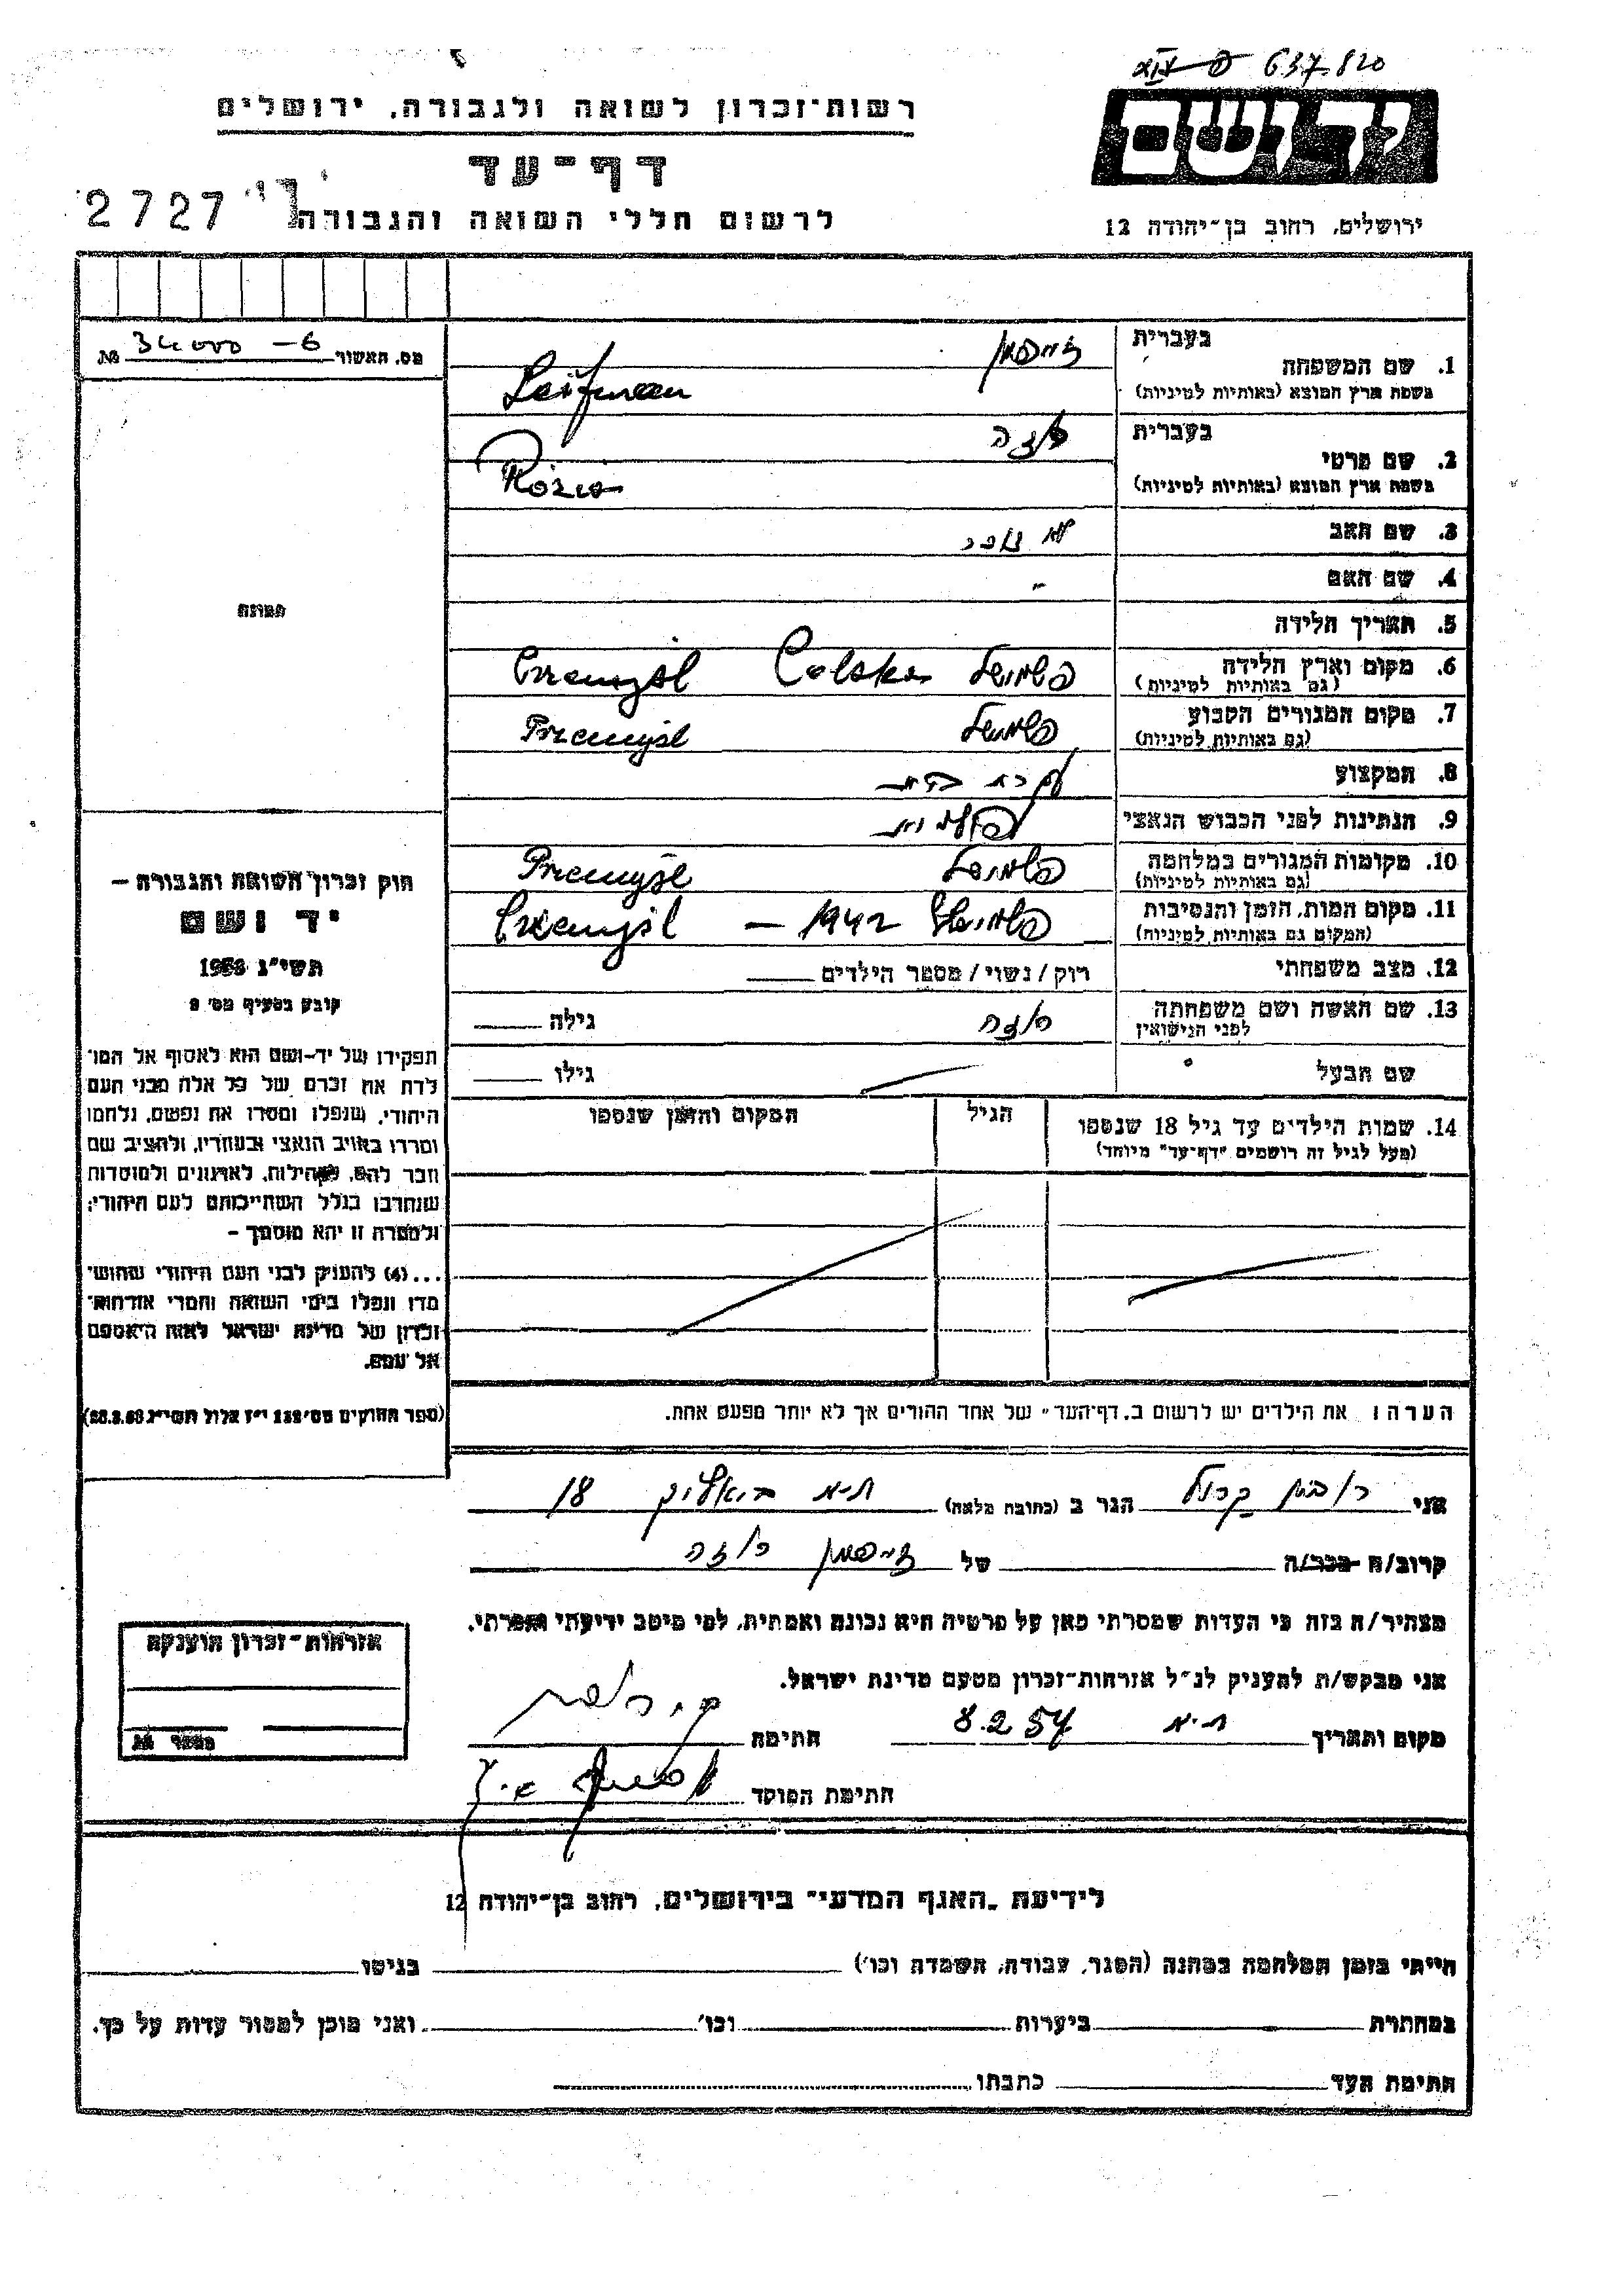 637.820
רשות־זכרון לשואה ולגבורה, ירושלים
יד ושם
דף־עד
2727
לרשום חללי השואה והגבורה
ירושלים, רחוב בן־יהודה 12
מס. האשור 34000 - 6 №
בעברית לייפמן
1. שם המשפחה
בשפת ארץ המוצא (באותיות לטיניות) Leifman
בעברית רוזה
2. שם פרטי
בשפת ארץ המוצא (באותיות לטיניות) Rózia
3. שם האב לא זוכר
4. שם האם -
5. תאריך הלידה
6. מקום וארץ הלידה פשמישל Polska Przemyśl
(גם באותיות לטיניות)
7. מקום המגורים הקבוע פשמישל Przemyśl
(גם באותיות לטיניות)
8. המקצוע עקרת בית
9. הנתינות לפני הכבוש הנאצי פולנית
10. מקומות המגורים במלחמה פשמישל Przemyśl
(גם באותיות לטיניות)
11. מקום המות, הזמן והנסיבות פשמישל 1942 — Przemyśl
(המקום גם באותיות לטיניות)
12. מצב משפחתי רוק / נשוי / מספר הילדים
13. שם האשה ושם משפחתה רוזה גילה
לפני הנישואין
שם הבעל גילו
14. שמות הילדים עד גיל 18 שנספו הגיל המקום והזמן שנספו
(מעל לגיל זה רושמים "דף־עד" מיוחד)
הערה: את הילדים יש לרשום ב„דף־העד" של אחד ההורים אך לא יותר מפעם אחת.
תמונה
חוק זכרון השואה והגבורה –
יד ושם
תשי"ג 1953
קובע בסעיף מס' 2
תפקידו של יד-ושם הוא לאסוף אל המו־
לדת את זכרם של כל אלה מבני העם
היהודי, שנפלו ומסרו את נפשם, נלחמו
ומרדו באויב הנאצי ובעוזריו, ולהציב שם
וזכר להם, לקהילות, לארגונים ולמוסדות
שנחרבו בגלל השתייכותם לעם היהודי;
ולמטרה זו יהא מוסמך –
...(4) להעניק לבני העם היהודי שהוש־
מדו ונפלו בימי השואה והמרי אזרחות־
זכרון של מדינת ישראל לאות היאספם
אל עמם.
(ספר החוקים מס' 132 י"ז אלול תשי"ג 28.8.53)
אני הגר ב (כתובת מלאה) ת״א ביאליק 18
קרוב/ה מכר/ה של לייפמן רוזה
מצהיר/ה בזה כי העדות שמסרתי כאן על פרטיה היא נכונה ואמתית, לפי מיטב ידיעתי והכרתי.
אני מבקש/ת להעניק לנ"ל אזרחות־זכרון מטעם מדינת ישראל.
מקום ותאריך ת״א 8.2.57 חתימה
חתימת הפוקד
אזרחות־זכרון הוענקה
מספר №
לידיעת „האגף המדעי" בירושלים, רחוב בן־יהודה 12
הייתי בזמן המלחמה במחנה (הסגר, עבודה, השמדה וכו') בגיטו
במחתרת ביערות וכו' ואני מוכן למסור עדות על כך.
חתימת העד כתבתו